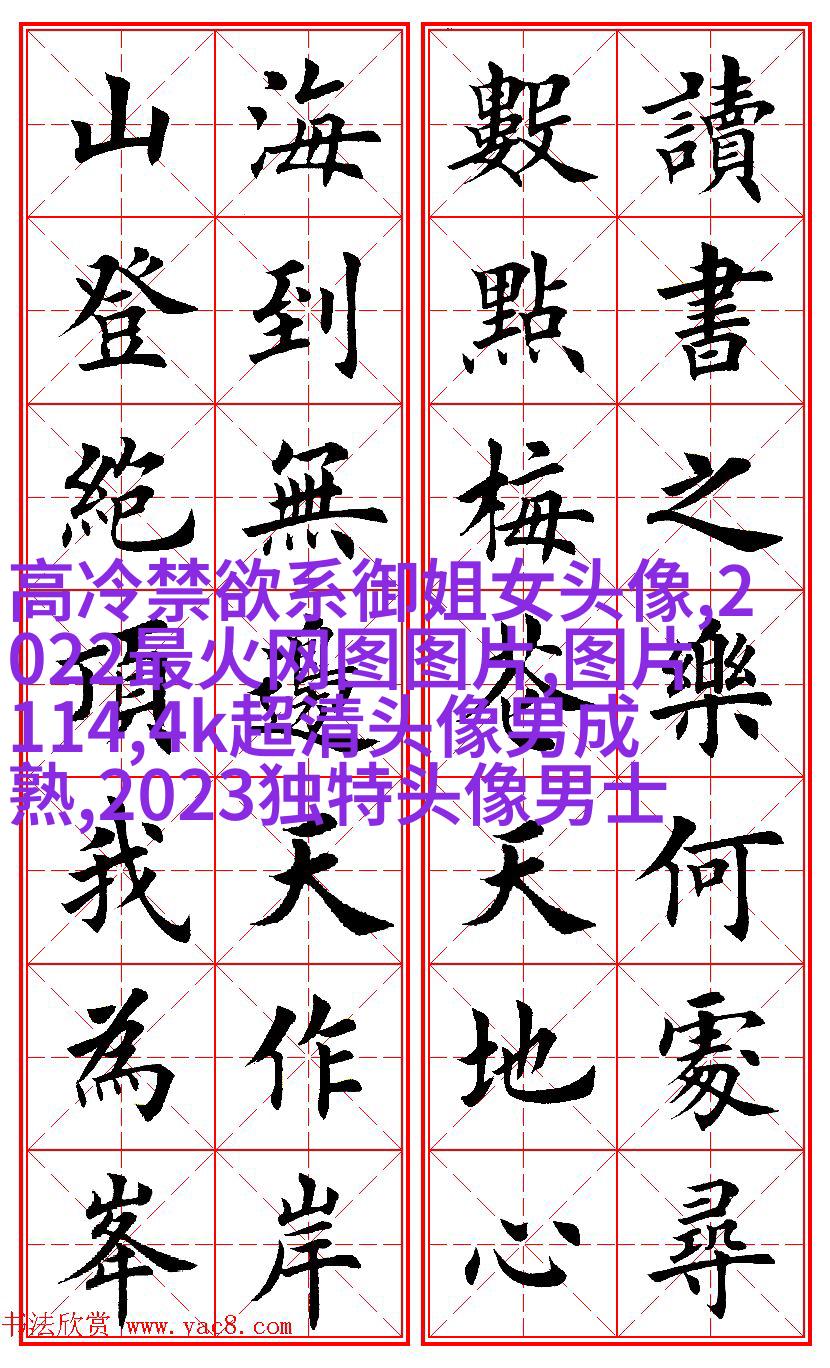 讀書之樂何處尋
數點梅天地心
海到無邊天作岸
山登絶頂我為峯
高冷禁欲系御姐女头像,2
022最火网图图片,图片
114,4k超清头像男成
熟,2023独特头像男士
书法欣赏 www.yac8.com